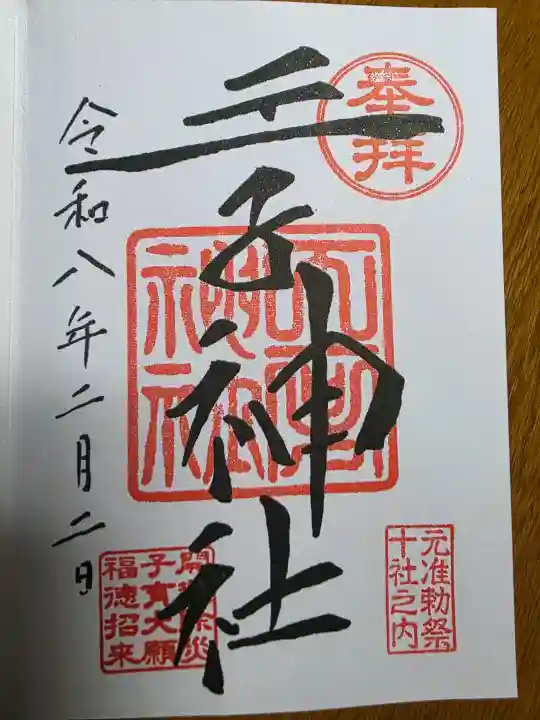 奉拝
王子神社
元准勅祭
十社之内
開運除災
子育大願
福徳招来
令和八年二月二日